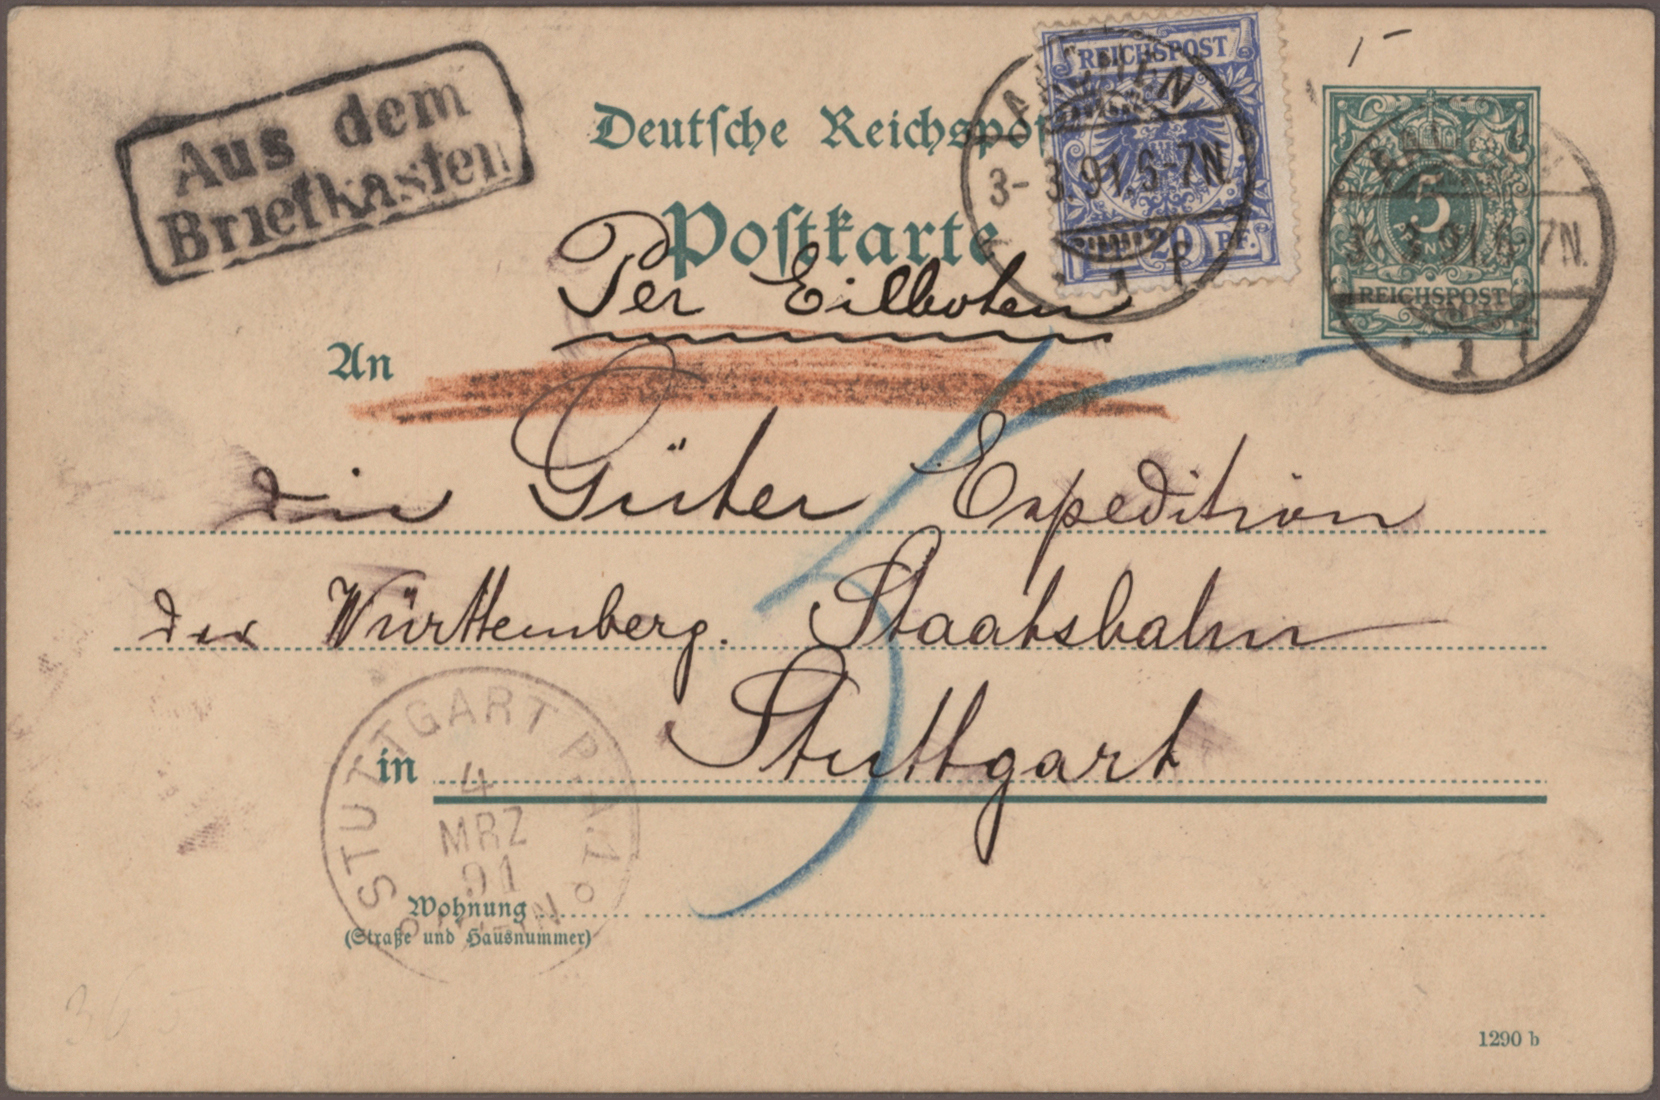 Aus dem
Briefkasten
Deutsche Reichspost
Postkarte
REICHSPOST
20 PF.
AACHEN
3- 3.91.6-7N.
1
5
REICHSPOST
3- 3.91.6-7N.
1
Per Eilboten
An
die Güter Expedition
der Württemberg. Staatsbahn
in Stuttgart
STUTTGART P.A.
4
MRZ
91
Wohnung
(Straße und Hausnummer)
365
1290 b